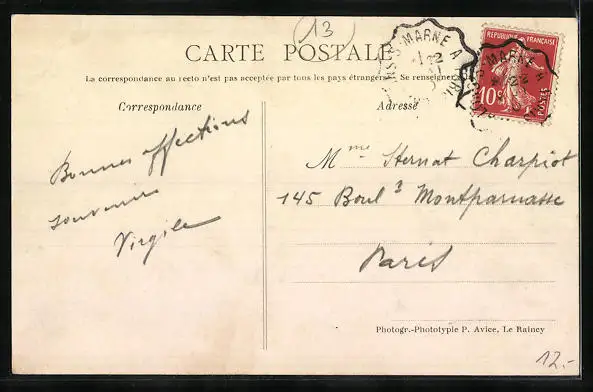 13
CARTE POSTALE
La correspondance au recto n'est pas acceptée par tous les pays étrangers. Se renseigner
Correspondance
Adresse
Bonnes affections
souvenirs
Virgile
Mme Sternat Charpiot
145 Boul d Montparnasse
Paris
Photogr.-Phototypie P. Avice, Le Raincy
12.-
REPUBLIQUE FRANÇAISE
10c
POSTES
S-MARNE A
S-MARNE A